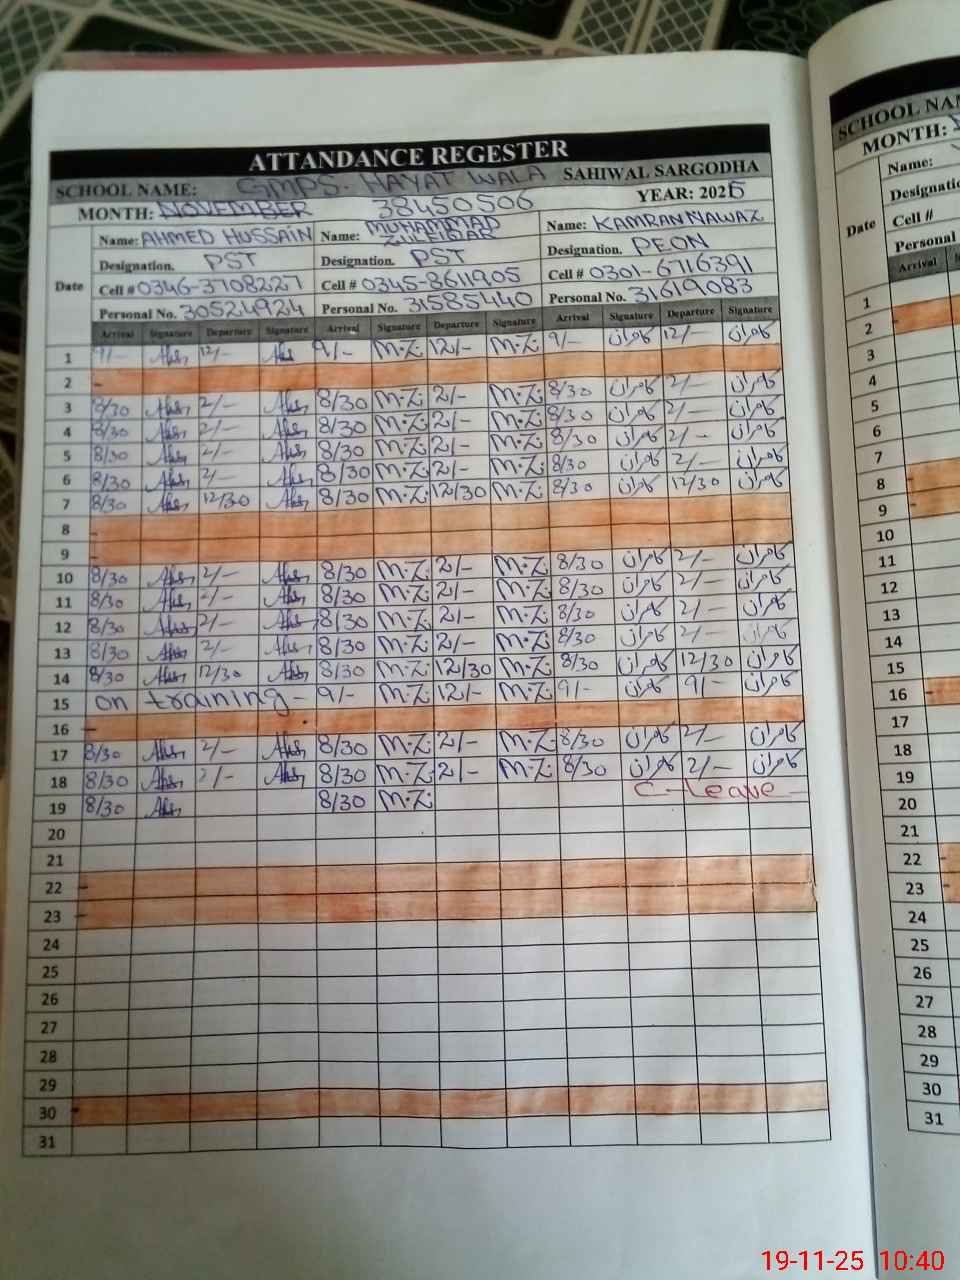 ATTANDANCE REGESTER
SCHOOL NAME: GMPS. HAYAT WALA SAHIWAL SARGODHA
MONTH: NOVEMBER 38450506 YEAR: 2025
Name: AHMED HUSSAIN Name: MUHAMMAD ZULFIQAR Name: KAMRAN NAWAZ
Designation. PST Designation. PST Designation. PEON
Date Cell # 0346-3708227 Cell # 0345-8611905 Cell # 0301-6716391
Personal No. 30524924 Personal No. 31585440 Personal No. 31619083
Arrival Signature Departure Signature Arrival Signature Departure Signature Arrival Signature Departure Signature
1 9/- 12/- 9/- M.Z 12/- M.Z 9/- کامران 12/- کامران
2 -
3 8/30 2/- 8/30 M.Z 2/- M.Z 8/30 کامران 2/- کامران
4 8/30 2/- 8/30 M.Z 2/- M.Z 8/30 کامران 2/- کامران
5 8/30 2/- 8/30 M.Z 2/- M.Z 8/30 کامران 2/- کامران
6 8/30 2/- 8/30 M.Z 2/- M.Z 8/30 کامران 2/- کامران
7 8/30 12/30 8/30 M.Z 12/30 M.Z 8/30 کامران 12/30 کامران
8 -
9 -
10 8/30 2/- 8/30 M.Z 2/- M.Z 8/30 کامران 2/- کامران
11 8/30 2/- 8/30 M.Z 2/- M.Z 8/30 کامران 2/- کامران
12 8/30 2/- 8/30 M.Z 2/- M.Z 8/30 کامران 2/- کامران
13 8/30 2/- 8/30 M.Z 2/- M.Z 8/30 کامران 2/- کامران
14 8/30 12/30 8/30 M.Z 12/30 M.Z 8/30 کامران 12/30 کامران
15 on training - 9/- M.Z 12/- M.Z 9/- کامران 9/- کامران
16 -
17 8/30 2/- 8/30 M.Z 2/- M.Z 8/30 کامران 2/- کامران
18 8/30 2/- 8/30 M.Z 2/- M.Z 8/30 کامران 2/- کامران
19 8/30 8/30 M.Z C-Leave -
20
21
22 -
23 -
24
25
26
27
28
29
30 -
31
SCHOOL
MONTH:
Name:
Date
Cell #
Personal
Arrival
1
2
3
4
5
6
7
8
9
10
11
12
13
14
15
16
17
18
19
20
21
22
23
24
25
26
27
28
29
30
31
19-11-25 10:40